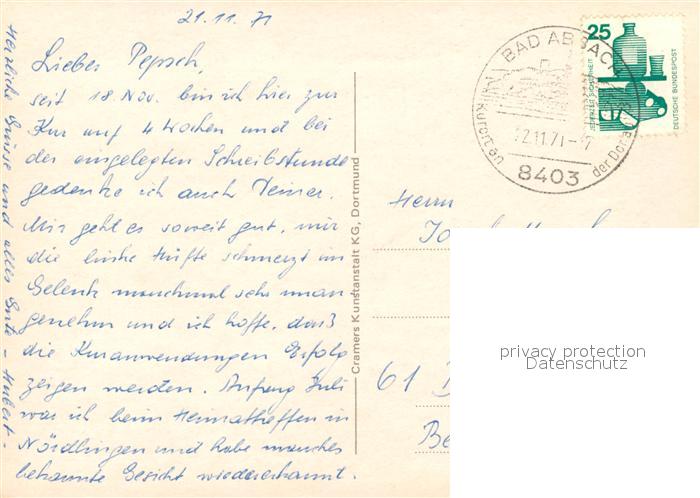 21.11.71
Lieber Pepsch,
seit 18. Nov. bin ich hier zur
Kur auf 4 Wochen und bei
der eingelegten Schreibstunde
gedenke ich auch Deiner.
Mir geht es soweit gut, nur
die linke Hüfte schmerzt im
Gelenk manchmal sehr unan
genehm und ich hoffe, daß
die Kuranwendungen Erfolg
zeigen werden. Anfang Juli
war ich beim Heimattreffen in
Nördlingen und habe manches
bekannte Gesicht wiedererkannt.
Herzliche Grüsse und alles Gute - Hubert -
Cramers Kunstanstalt KG, Dortmund
BAD ABBACH
Kurort an der Donau
22.11.71-17
8403
25
JEDERZEIT SICHERHEIT
DEUTSCHE BUNDESPOST
Herrn
61
privacy protection
Datenschutz